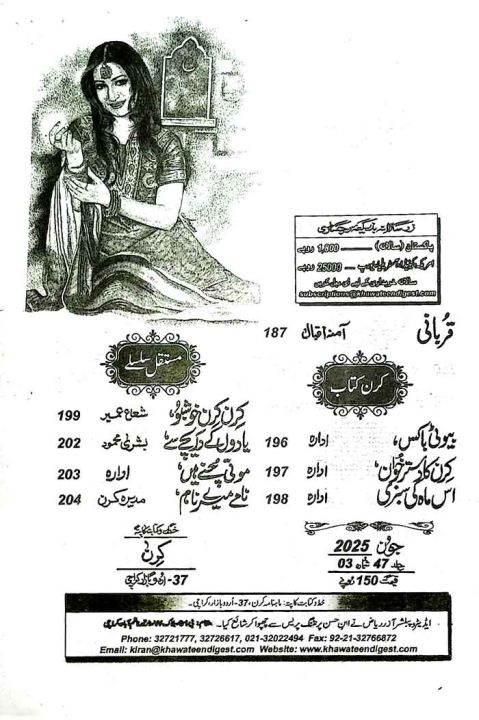 زرسالانہ بذریعہ رجسٹری
پاکستان (سالانہ) ــــــ 1,800 روپے
ــــــ 25000 روپے
سالانہ خریداری کے لیے ای میل کریں
subscriptions@khawateendigest.com
قربانی آمنہ اقبال 187
کرن کتاب
بیوٹی باکس، ادارہ 196
کرن کا دسترخوان، ادارہ 197
اس ماہ کی سبزی ادارہ 198
مستقل سلسلے
کرن کرن خوشبو، شعاع عمیر 199
یادوں کے دریچے سے، بشریٰ محمود 202
موتی چنے ہیں، ادارہ 203
نامے میرے نام، مدیرہ کرن 204
جون 2025
جلد 47 شمارہ 03
قیمت 150 روپے
خط و کتابت کا پتہ
کرن
37- اردو بازار کراچی
خط و کتابت کا پتہ: ماہنامہ کرن، 37- اردو بازار، کراچی۔
ایڈیٹر و پبلشر آذر ریاض نے ابن حسن پرنٹنگ پریس سے چھپوا کر شائع کیا۔
Phone: 32721777, 32726617, 021-32022494 Fax: 92-21-32766872
Email: kiran@khawateendigest.com Website: www.khawateendigest.com